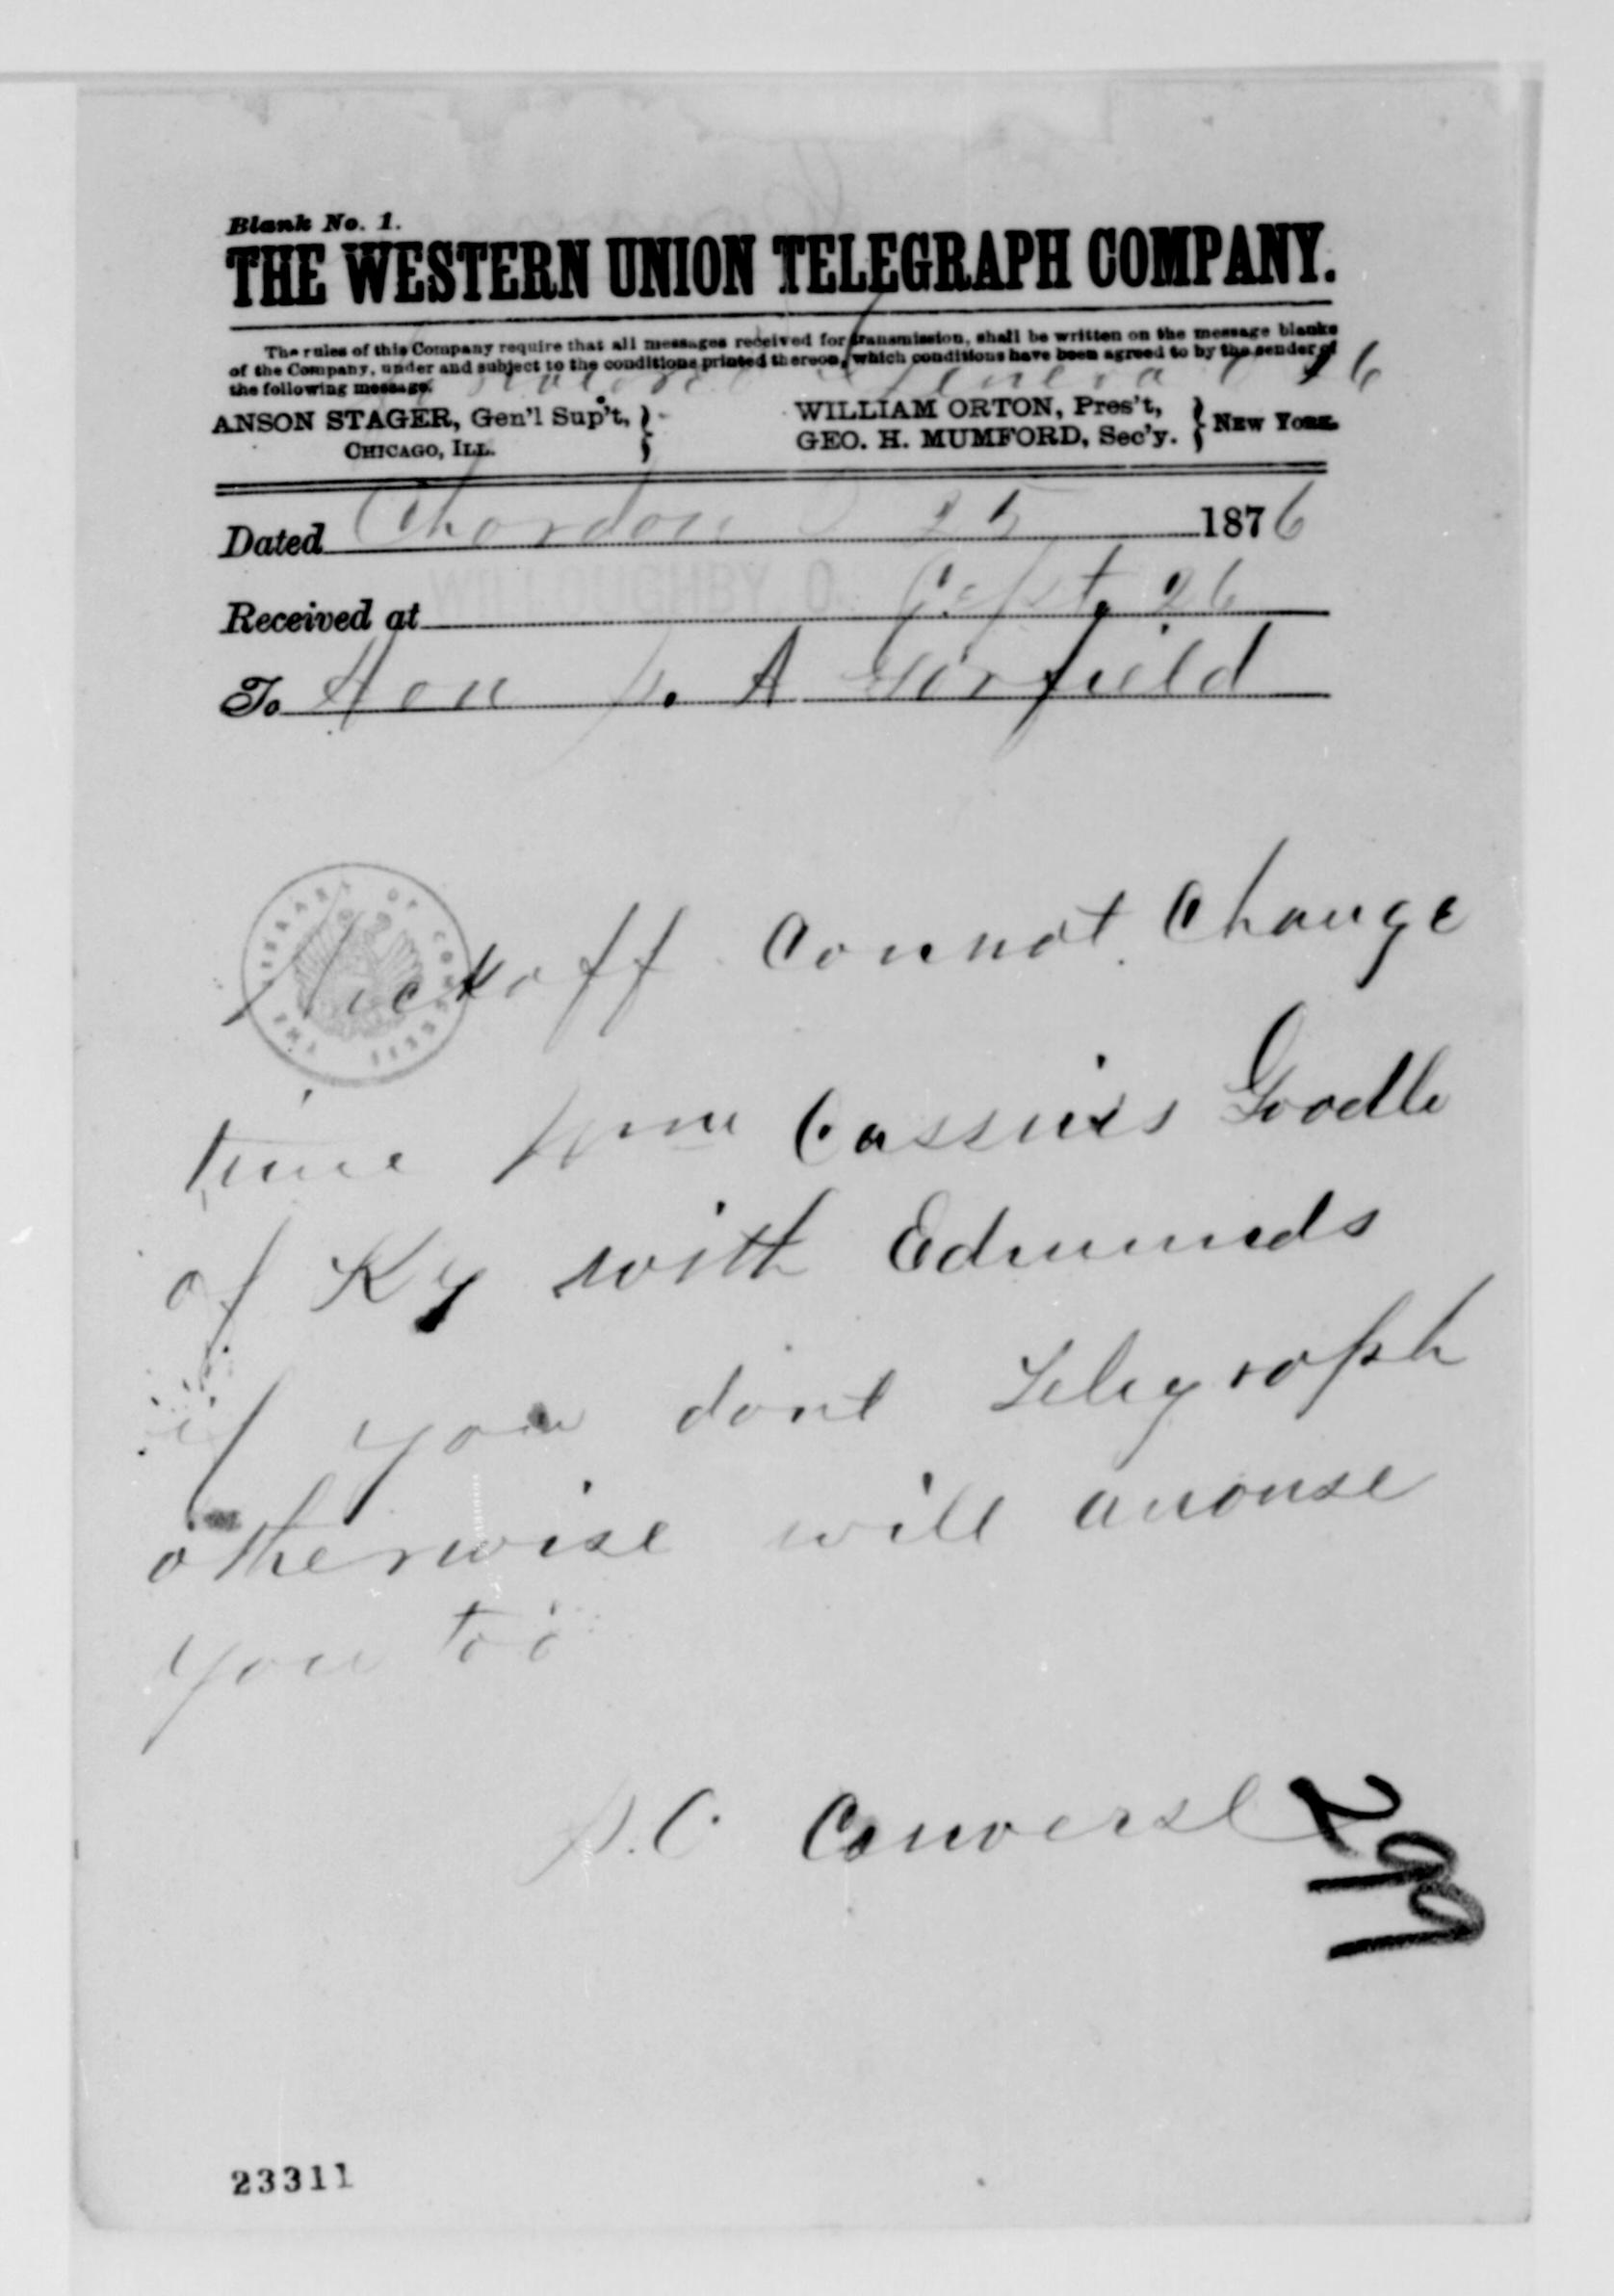 Blank No. 1.
THE WESTERN UNION TELEGRAPH COMPANY.
The rules of this Company require that all messages received for transmission, shall be written on the message blanks
of the Company, under and subject to the conditions printed thereon, which conditions have been agreed to by the sender of
the following message.
ANSON STAGER, Gen'l Sup't,
CHICAGO, ILL.
WILLIAM ORTON, Pres't,
GEO. H. MUMFORD, Sec'y.
NEW YORK.
Dated Chardon O 25 1876
Received at WILLOUGHBY, O. Sept. 26
To Hon J. A Garfield
THE LIBRARY OF CONGRESS
cannot change
time Wm Cassius Goodlo
of Ky with Edmunds
if you dont Telegraph
otherwise will arouse
you too
Converse
299
23311